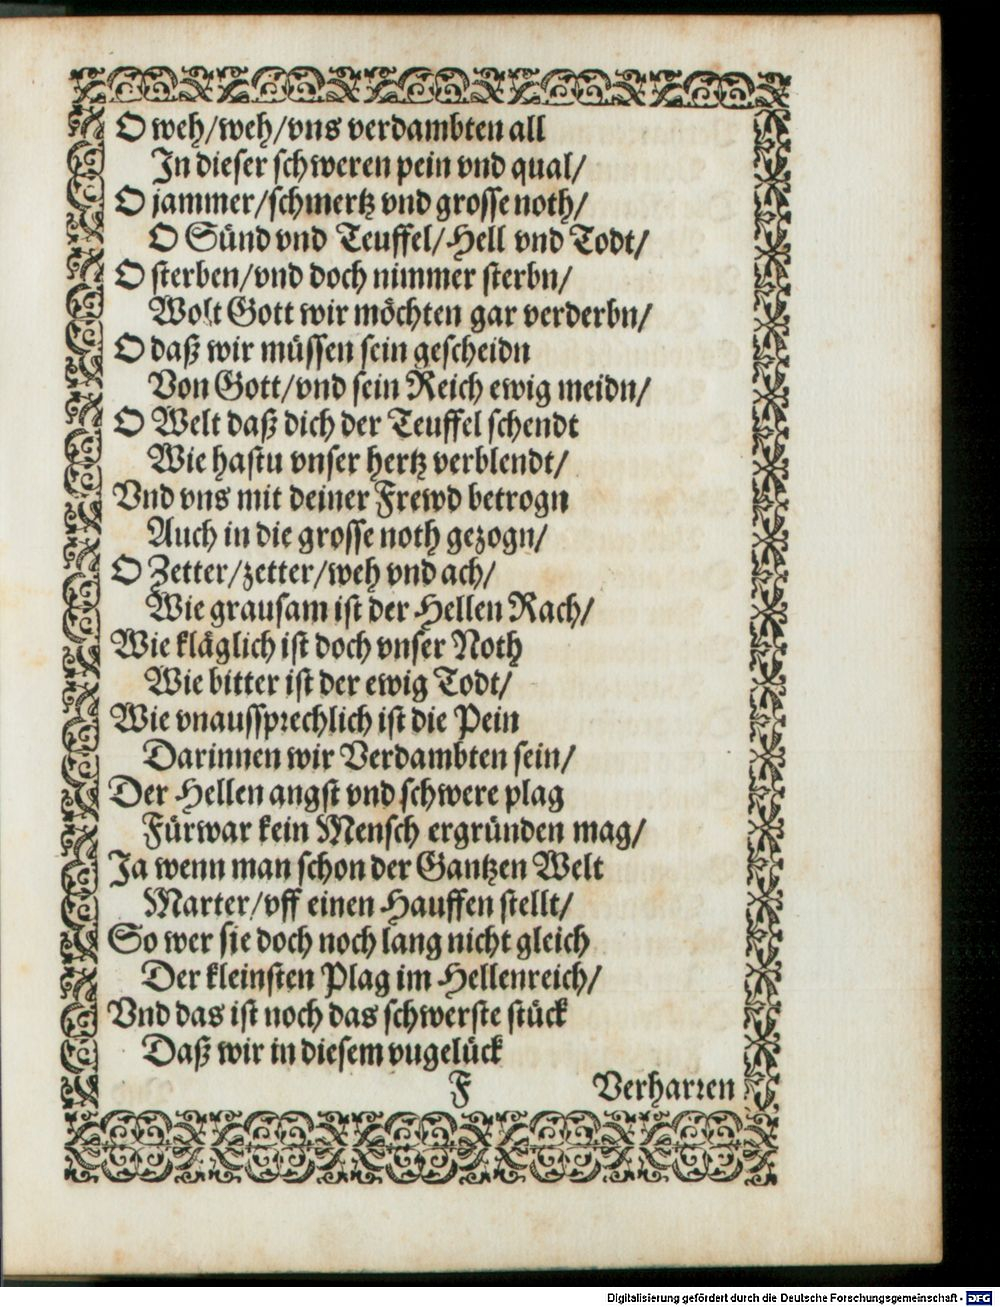 O weh/weh/vns verdambten all
In dieser schweren pein vnd qual/
O jammer/schmertz vnd grosse noth/
O Sünd vnd Teuffel/Hell vnd Todt/
O sterben/vnd doch nimmer sterbn/
Wolt Gott wir möchten gar verderbn/
O daß wir müssen sein gescheidn
Von Gott/vnd sein Reich ewig meidn/
O Welt daß dich der Teuffel schendt
Wie hastu vnser hertz verblendt/
Vnd vns mit deiner Frewd betrogn
Auch in die grosse noth gezogn/
O Zetter/zetter/weh vnd ach/
Wie grausam ist der Hellen Rach/
Wie kläglich ist doch vnser Noth
Wie bitter ist der ewig Todt/
Wie vnaussprechlich ist die Pein
Darinnen wir Verdambten sein/
Der Hellen angst vnd schwere plag
Fürwar kein Mensch ergründen mag/
Ja wenn man schon der Gantzen Welt
Marter/vff einen Hauffen stellt/
So wer sie doch noch lang nicht gleich
Der kleinsten Plag im Hellenreich/
Vnd das ist noch das schwerste stück
Daß wir in diesem vugelück
F Verharren
Digitalisierung gefördert durch die Deutsche Forschungsgemeinschaft - DFG